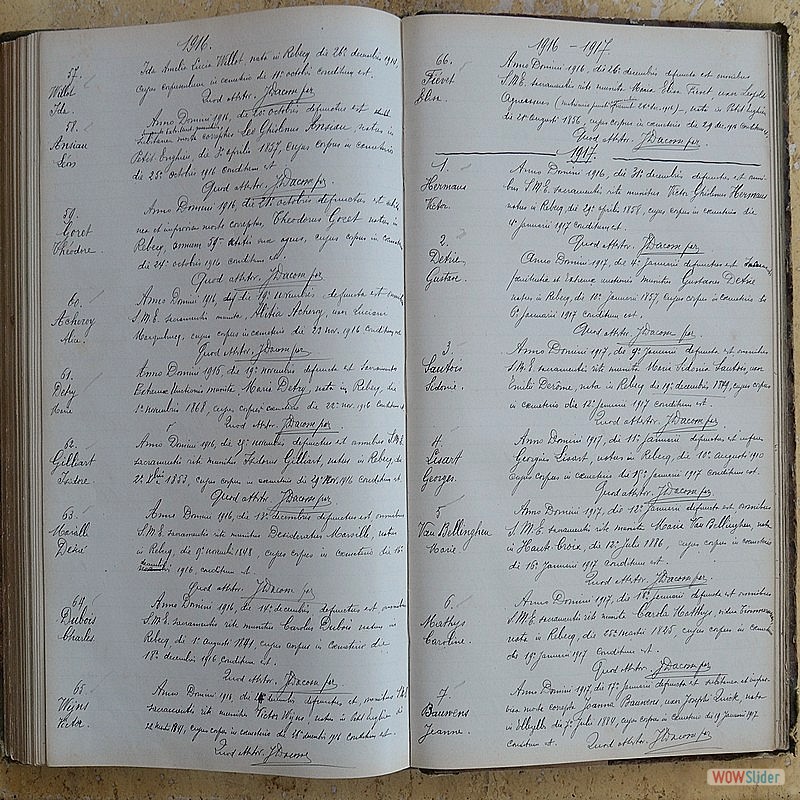 1916.
57.
Willot
Ida.
Ida Amelia Lucia Willot, nata in Rebecq die 26ª decembris
cujus corpusculum in cæmeterio die 11ª octobris conditum est.
Quod attestor. J Dacom per.
58.
Ansiau
Léon
Anno Domini 1916, die 20ª octobris defunctus est
morte correptus Leo Ghislenus Ansiau, natus in
Petit Enghien, die 3ª aprilis 1857, cujus corpus in cæmeterio
die 23ª octobris 1916 conditum est.
Quod attestor. J Dacom per.
59.
Goret
Théodore.
Anno Domini 1916, die 21ª octobris defunctus est
et improvisa morte correptus, Theodorus Goret natus in
Rebecq, annum 59m ætatis suæ agens, cujus corpus in cæmeterio
die 24ª octobris 1916 conditum est.
Quod attestor. J Dacom per.
60.
Acheroy
Anno Domini 1916, die 19ª novembris defuncta est
S.M.E. sacramentis munita, Acheroy, uxor Luciani
cujus corpus in cæmeterio die 23 nov. 1916 conditum est
Quod attestor. J Dacom per.
61.
Detry
Anno Domini 1916, die 19ª novembris defuncta est Sacramento
Extremæ Unctionis munita Maria Detry, nata in Rebecq, die
1ª novembris 1868, cujus corpus cæmeterio die 22ª nov. 1916 conditum
Quod attestor. J Dacom per.
62.
Gilliart
Isidore.
Anno Domini 1916, die 25ª novembris defunctus est omnibus S.M.E.
sacramentis rite munitus Isidorus Gilliart, natus in Rebecq die
1853, cujus corpus in cæmeterio die 29ª Nov. 1916 conditum est.
Quod attestor. J Dacom per.
63.
Marsille
Désiré
Anno Domini 1916, die 13ª decembris defunctus est, omnibus
S.M.E. sacramentis rite munitus Desideratus Marsille, natus
in Rebecq, die 9ª novembris 1848, cujus corpus in cæmeterio die 16ª
1916 conditum est.
Quod attestor. J Dacom per.
64.
Dubois
Charles
Anno Domini 1916, die 14ª decembris, defunctus est, omnibus
S.M.E. sacramentis rite munitus Carolus Dubois natus in
Rebecq, die 1ª augusti 1841, cujus corpus in cæmeterio die
18ª decembris 1916 conditum est.
Quod attestor. J Dacom per.
65.
Wyns
Victor.
Anno Domini 1916, die defunctus est, omnibus S.M.E.
sacramentis rite munitus Victor Wyns, natus in Petit Enghien die
1841, cujus corpus in cæmeterio die 1916 conditum est.
Quod attestor. J Dacom
1916 - 1917
66.
Fievet
Elise.
Anno Domini 1916, die 26ª decembris defuncta est omnibus
S.M.E. sacramentis rite munita Maria Elisa Fievet uxor Leopoldi
nata in Petit Enghien,
die 20ª augusti 1856, cujus corpus in cæmeterio die 29 dec. 1916 conditum
Quod attestor. J Dacom per.
1917.
1.
Hermans
Victor.
Anno Domini 1916, die 31ª decembris defunctus est omni-
bus S.M.E. sacramentis rite munitus Victor Ghislenus Hermans
natus in Rebecq die 29ª aprilis 1858, cujus corpus in cæmeterio die
4ª januarii 1917 conditum est.
Quod attestor. J Dacom per.
2.
Detrie
Gustave.
Anno Domini 1917, die 4ª januarii defunctus est
pœnitentiæ et Extremæ unctionis munitus Gustavus Detrie
natus in Rebecq, die 18ª januarii 1857, cujus corpus in cæmeterio die
6ª januarii 1917 conditum est.
Quod attestor. J Dacom per.
3.
Sautois
Sidonie.
Anno Domini 1917, die 9ª januarii defuncta est, omnibus
S.M.E. sacramentis rite munita Maria Sidonia Sautois, uxor
Emilii Derôme, nata in Rebecq die 19ª decembris 1849, cujus corpus
in cæmeterio die 12ª januarii 1917 conditum est.
Quod attestor. J Dacom per.
4.
Lisart
Georges.
Anno Domini 1917, die 11ª januarii defunctus est
Georgius Lisart, natus in Rebecq, die 10ª augusti 1910
cujus corpus in cæmeterio die 15ª januarii 1917 conditum est.
Quod attestor. J Dacom per.
5
Van Bellinghen
Marie.
Anno Domini 1917, die 12ª januarii defuncta est omnibus
S.M.E. sacramentis rite munita Maria Van Bellinghen, nata
in Haute Croix, die 12ª Julii 1886, cujus corpus in cæmeterio
die 16ª januarii 1917 conditum est.
Quod attestor. J Dacom per.
6.
Mathys
Caroline.
Anno Domini 1917, die 16ª januarii, defuncta est omnibus
S.M.E. sacramentis rite munita Carola Matthys, vidua
nata in Rebecq, die 25ª martii 1825, cujus corpus in cæmeterio
die 19ª januarii 1917 conditum est.
Quod attestor. J Dacom per.
7
Bauwens
Jeanne.
Anno Domini 1917, die 17ª januarii defuncta est
morte correpta Joanna Bauwens, uxor Josephi Quick, nata
in die 7ª Julii 1884, cujus corpus in cæmeterio die 19 januarii 1917
conditum est. Quod attestor. J Dacom per
WOWSlider